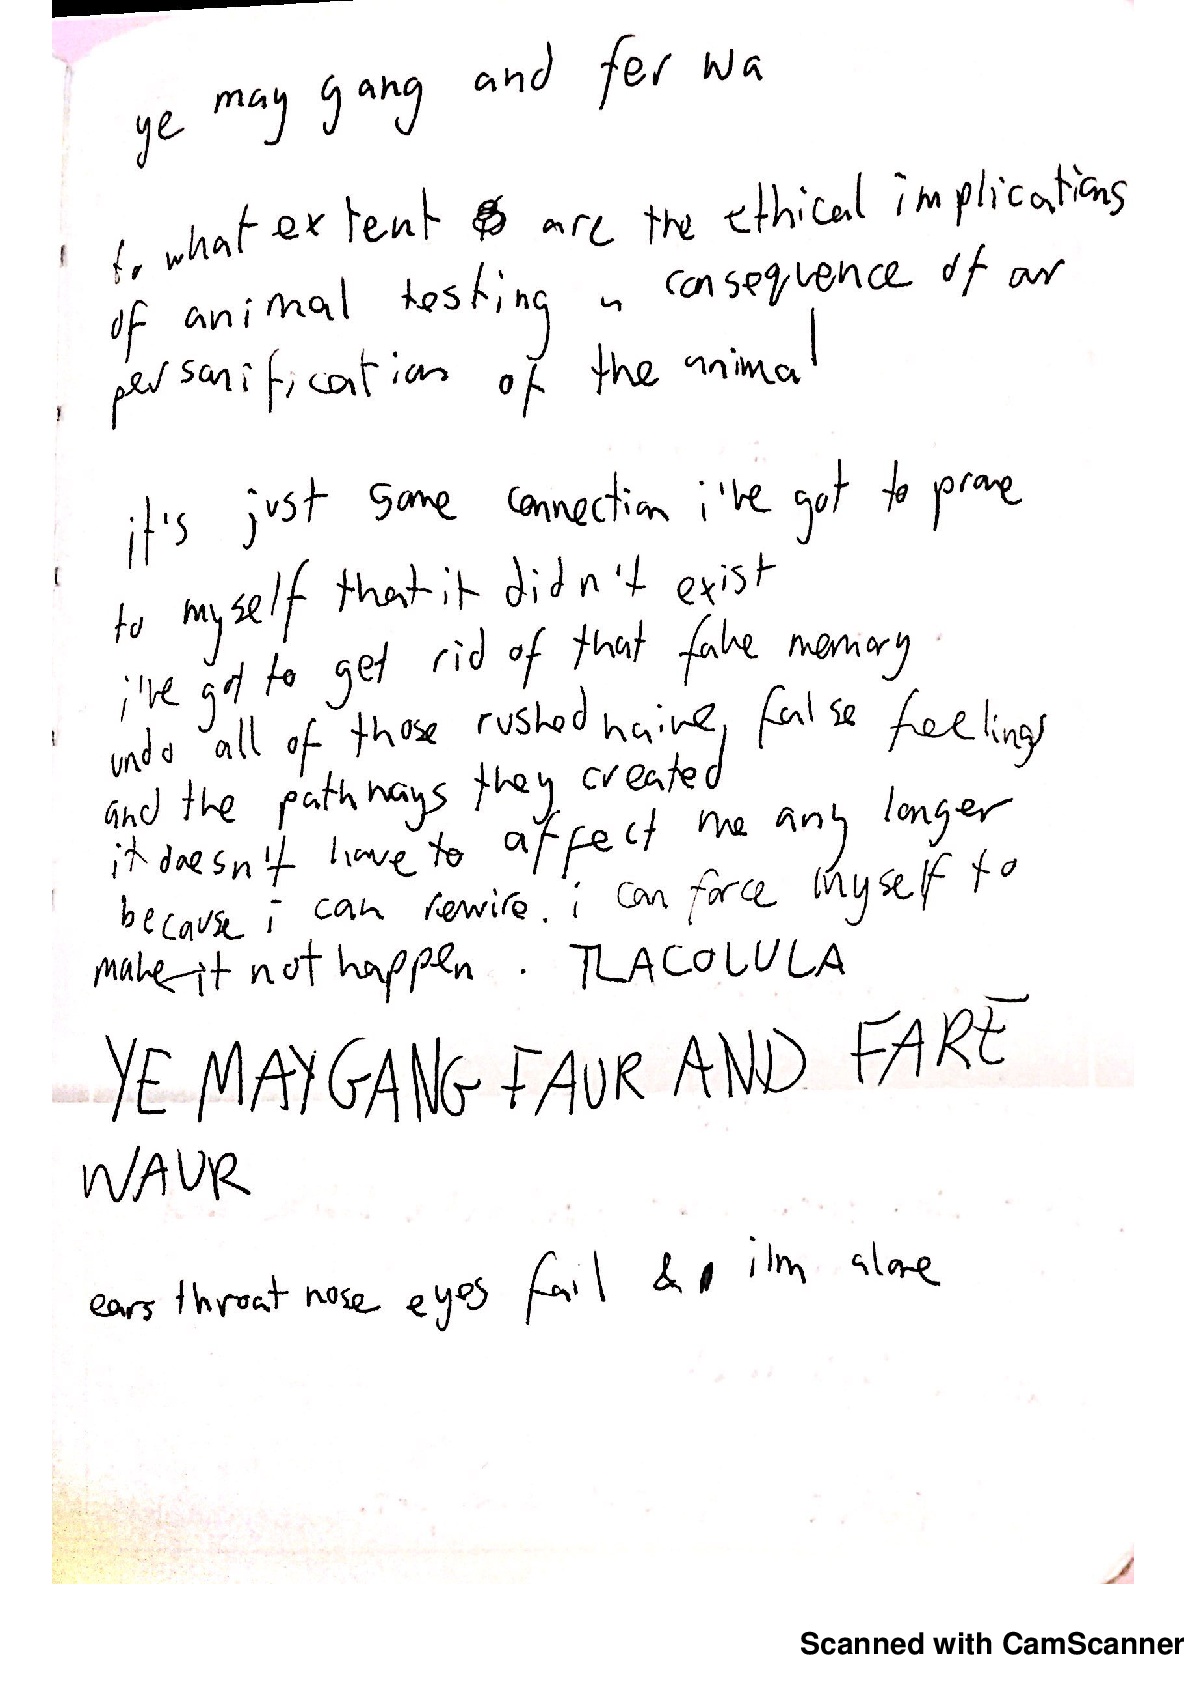 ye may gang and fer wa
to what extent are the ethical implications
of animal testing a consequence of our
personification of the animal
it's just some connection i've got to prove
to myself that it didn't exist
i've got to get rid of that fake memory
undo all of those rushed naive, false feelings
and the pathways they created
it doesn't have to affect me any longer
because i can rewire. i can force myself to
make it not happen. TLACOLULA
YE MAY GANG FAUR AND FARE
WAUR
ears throat nose eyes fail & i'm alone
Scanned with CamScanner